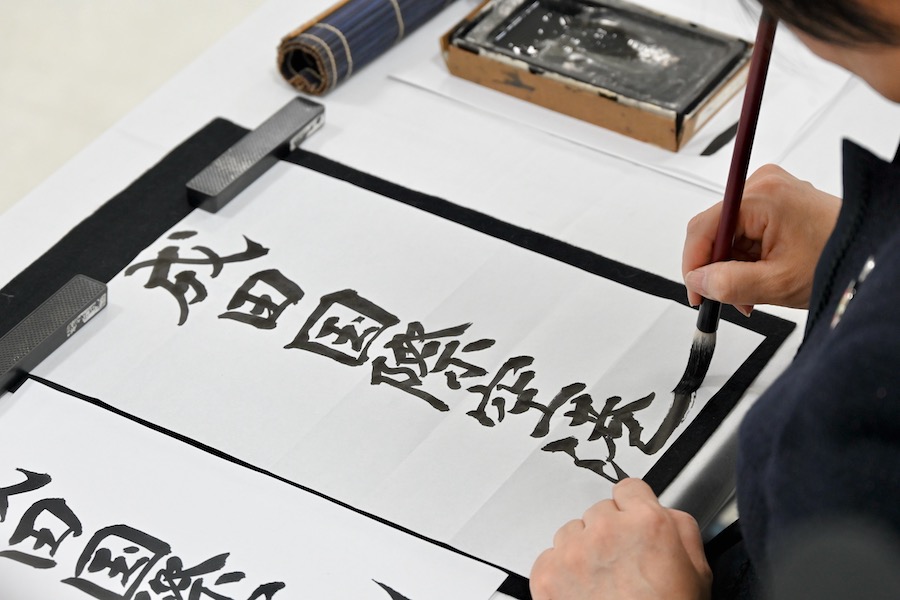 成田国際空港
田国際